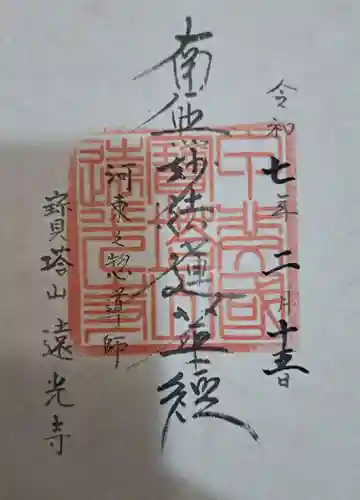 令和七年二月十五日
南無妙法蓮華經
河東之惣導師
寳塔山 遠光寺